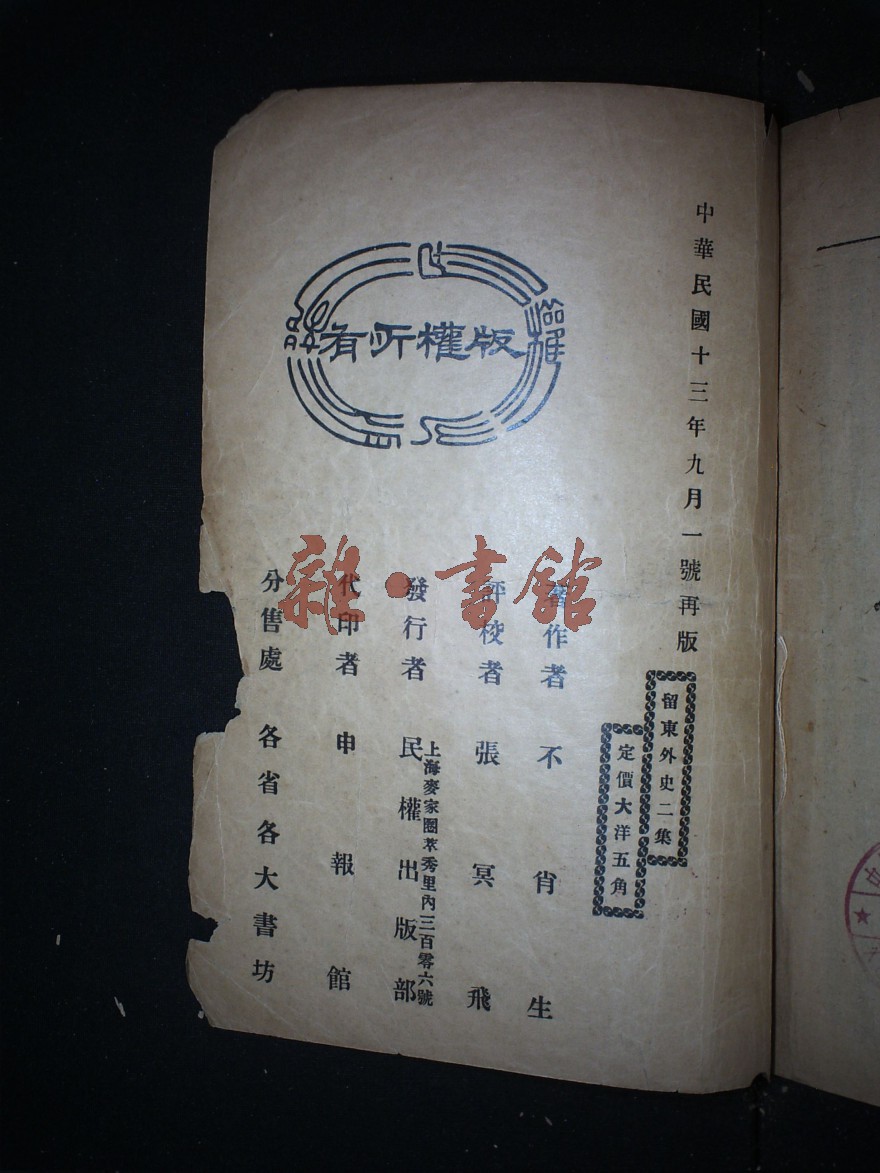 中華民國十三年九月一號再版
留東外史二集
定價大洋五角
版權所有
著作者 不肖生
評校者 張冥飛
發行者 民權出版部
上海麥家圈萃秀里內三百零六號
代印者 申報館
分售處 各省各大書坊
雜·書館